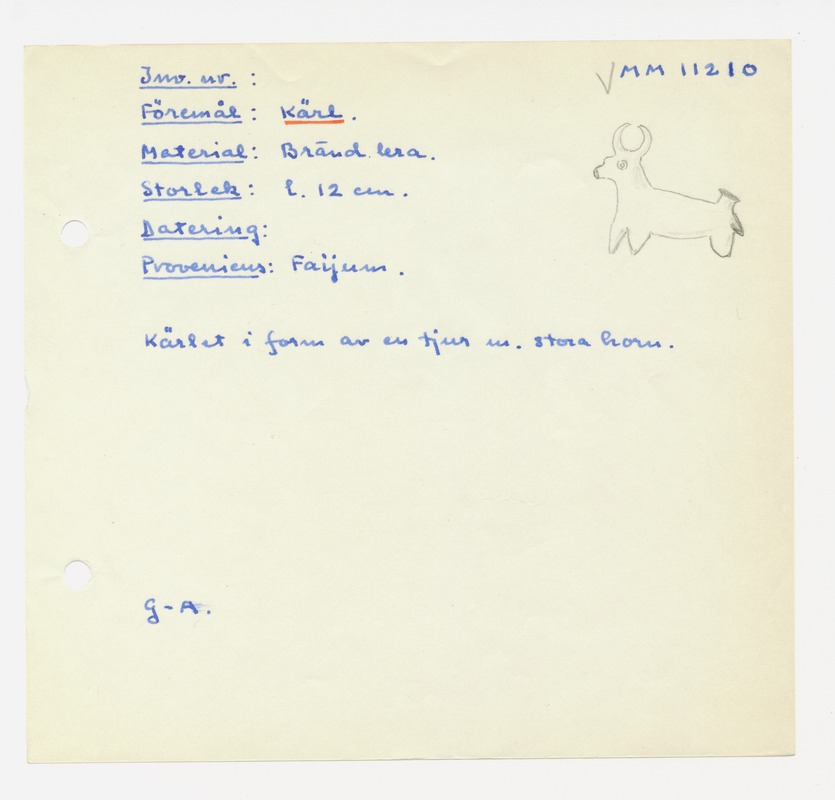 Inv. nr. :
MM 11210
Föremål : Kärl.
Material : Bränd lera.
Storlek : l. 12 cm.
Datering:
Proveniens: Faijum.
Kärlet i form av en tjur m. stora horn.
G-A.